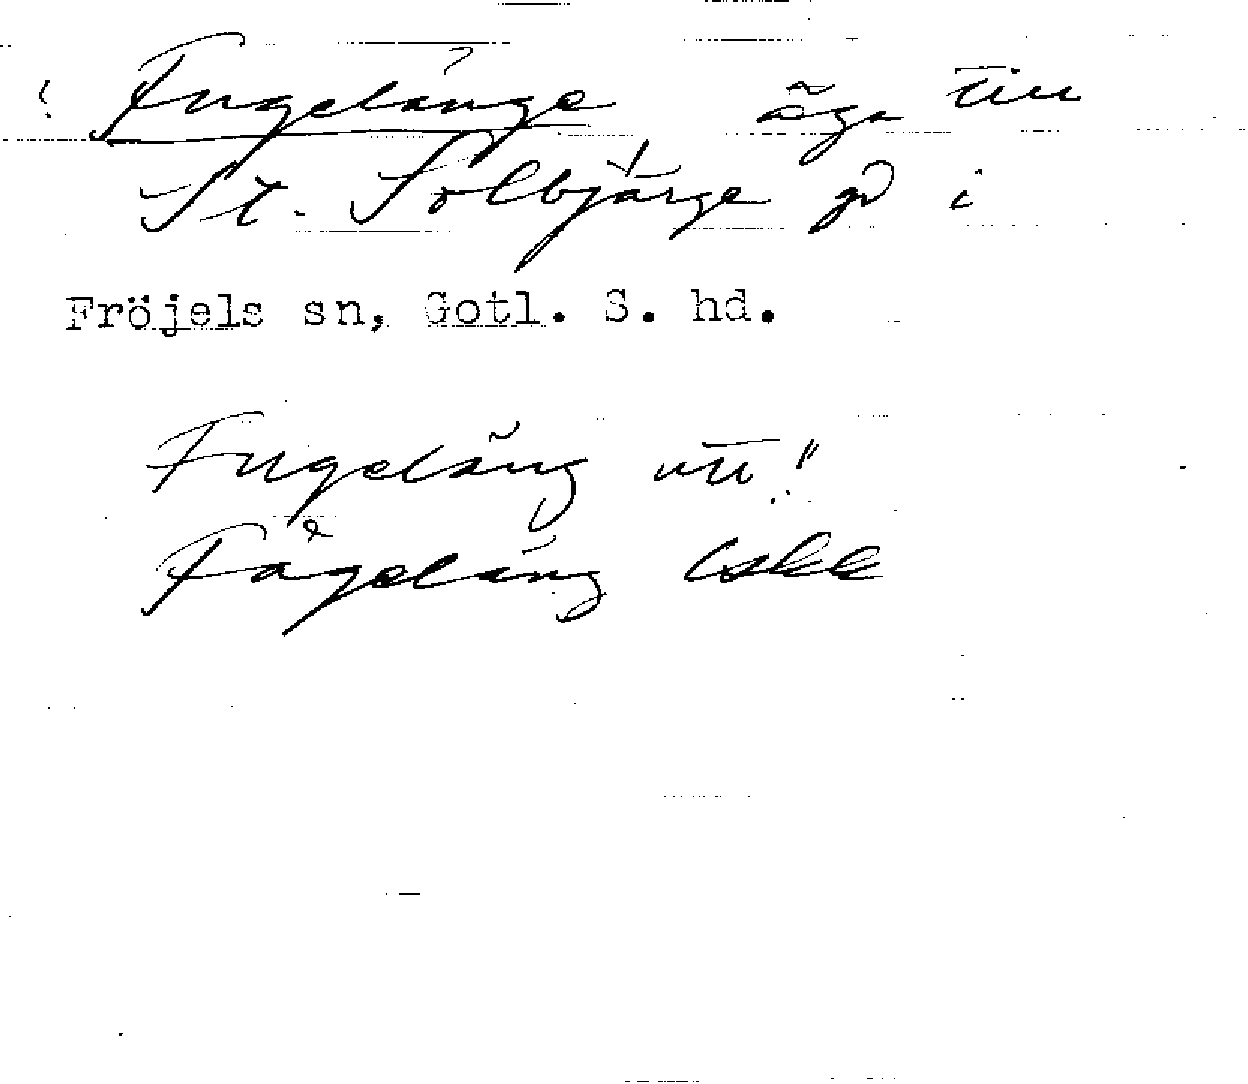 Fugelänge äga till
St. Solbjärge gd i
Fröjels sn, Gotl. S. hd.
Fugeläng utt!
Fågeläng